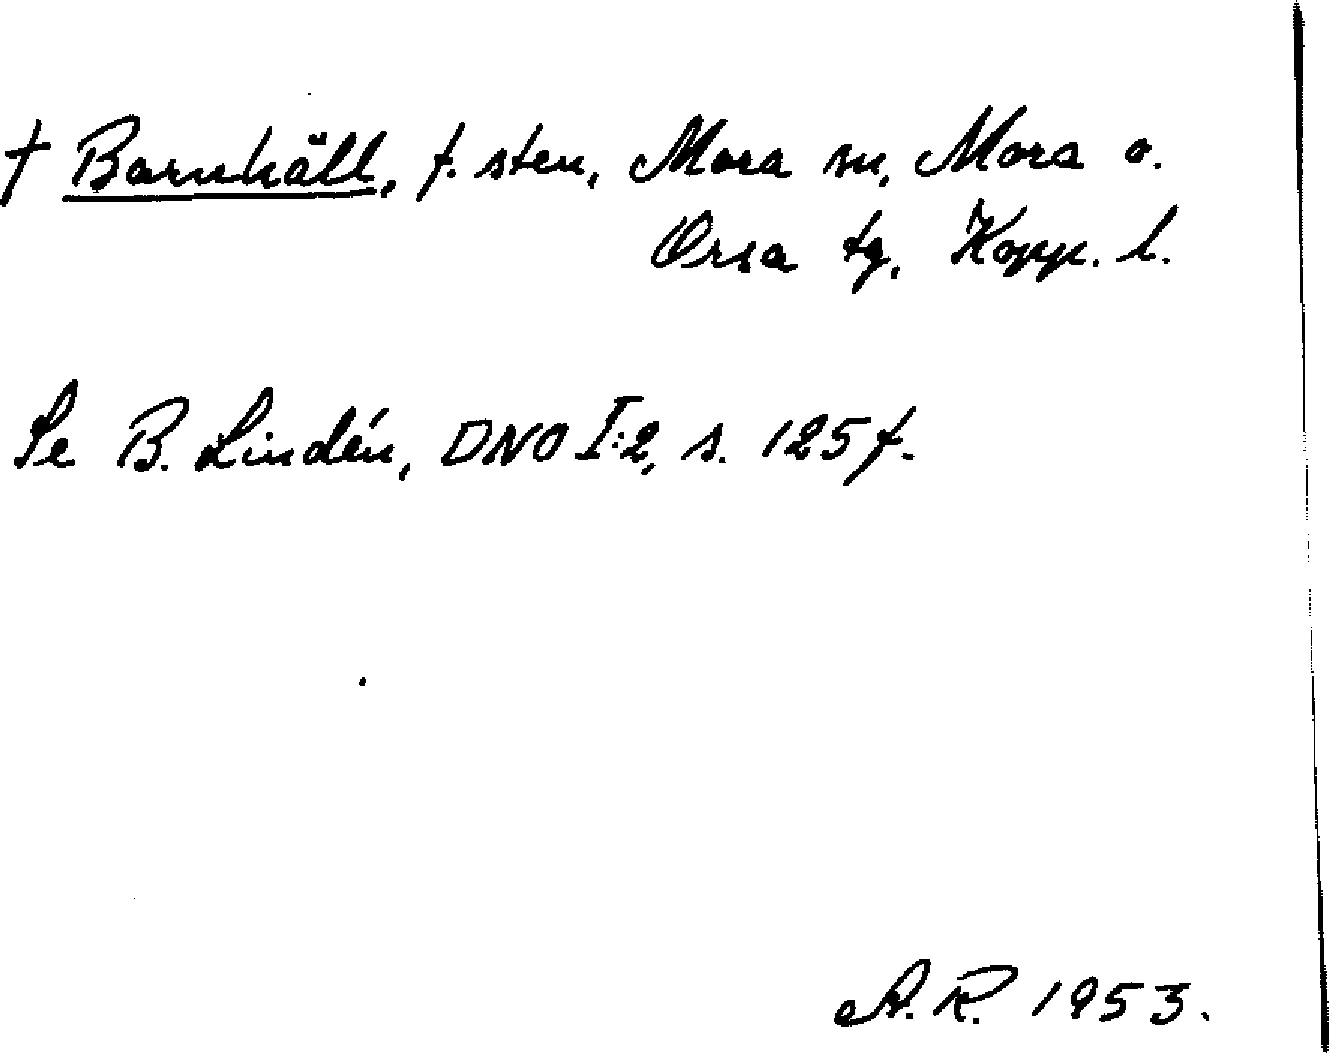 † Barnhäll, f. sten, Mora sn, Mora o.
Orsa tg, Kopp. l.
Se B. Lindén, DNO I:2, s. 125 f.
A. R. 1953.